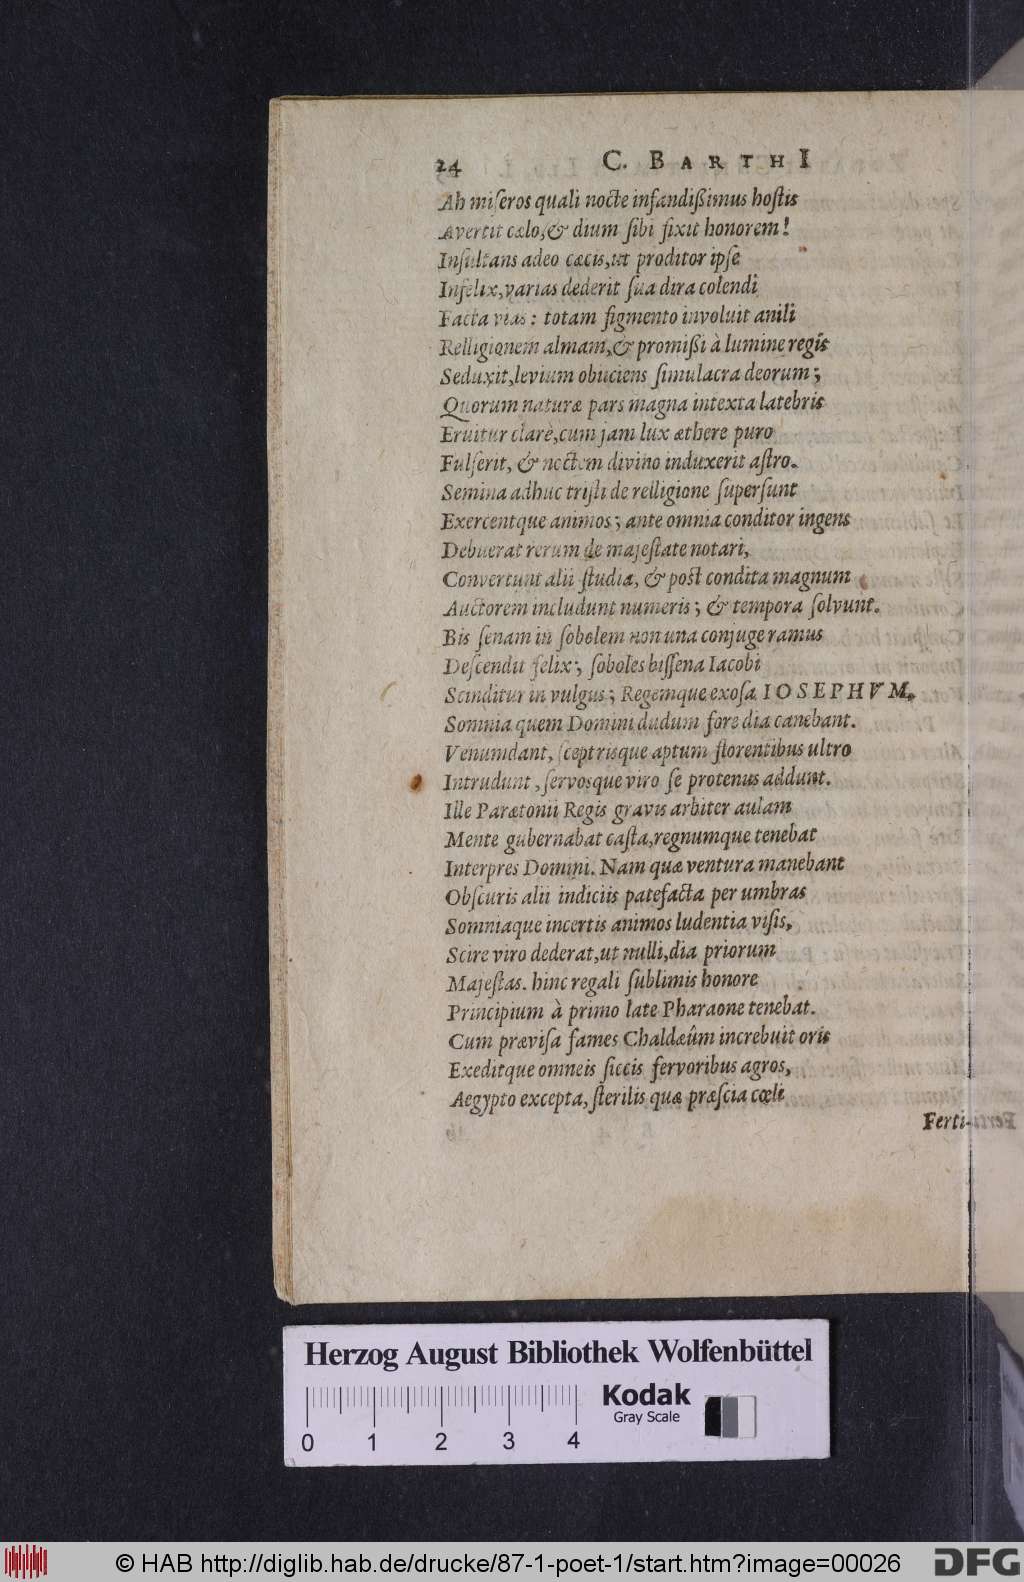 24 C. BARTHI
Ah miſeros quali nocte infandißimus hoſtis
Avertit cælo, & dium ſibi fixit honorem!
Inſultans adeo cæcis, ut proditor ipſe
Infelix, varias dederit ſua dira colendi
Facta vias: totam figmento involuit anili
Relligionem almam, & promißi à lumine regis
Seduxit, levium obijciens ſimulacra deorum;
Quorum naturæ pars magna intexta latebris
Eruitur clarè, cum jam lux æthere puro
Fulſerit, & noctem divino induxerit aſtro.
Semina adhuc triſti de relligione ſuperſunt
Exercentque animos; ante omnia conditor ingens
Debuerat rerum de majeſtate notari,
Convertunt alii ſtudia, & poſt condita magnum
Auctorem includunt numeris; & tempora ſolvunt.
Bis ſenam in ſobolem non una conjuge ramus
Deſcendit felix; ſoboles biſſena Iacobi
Scinditur in vulgus; Regemque exoſa IOSEPHVM,
Somnia quem Domini dudum fore dia canebant.
Venumdant, ſceptrisque aptum florentibus ultro
Intrudunt, ſervosque viro ſe protenus addunt.
Ille Parætonii Regis gravis arbiter aulam
Mente gubernabat caſta, regnumque tenebat
Interpres Domini. Nam quæ ventura manebant
Obſcuris alii indiciis patefacta per umbras
Somniaque incertis animos ludentia viſis,
Scire viro dederat, ut nulli, dia priorum
Majeſtas. hinc regali ſublimis honore
Principium à primo late Pharaone tenebat.
Cum præviſa fames Chaldæûm increbuit oris
Exeditque omneis ſiccis fervoribus agros,
Aegypto excepta, ſterilis quæ præſcia cœli
Ferti-
Herzog August Bibliothek Wolfenbüttel
Kodak
Gray Scale
0 1 2 3 4
© HAB http://diglib.hab.de/drucke/87-1-poet-1/start.htm?image=00026
DFG